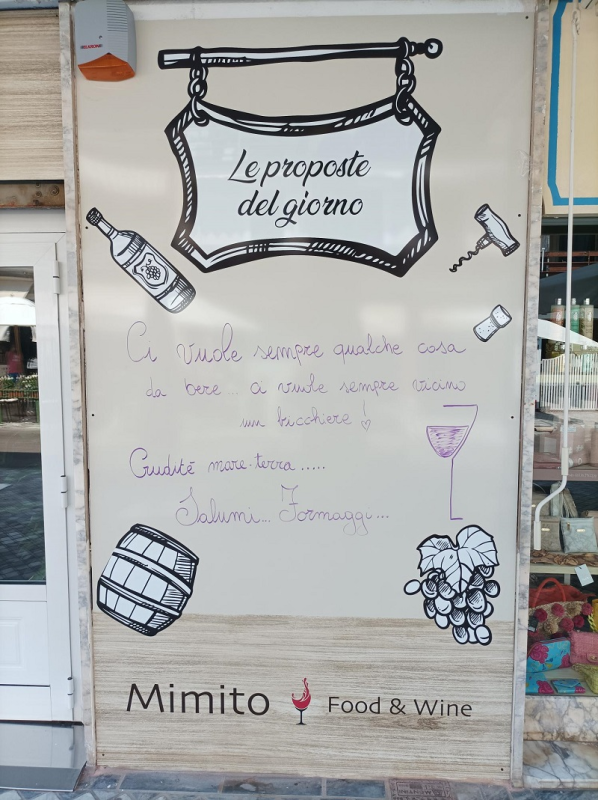 Le proposte
del giorno
Ci vuole sempre qualche cosa
da bere... ci vuole sempre vicino
un bicchiere!
Crudité mare-terra.....
Salumi... Formaggi...
Mimito Food & Wine